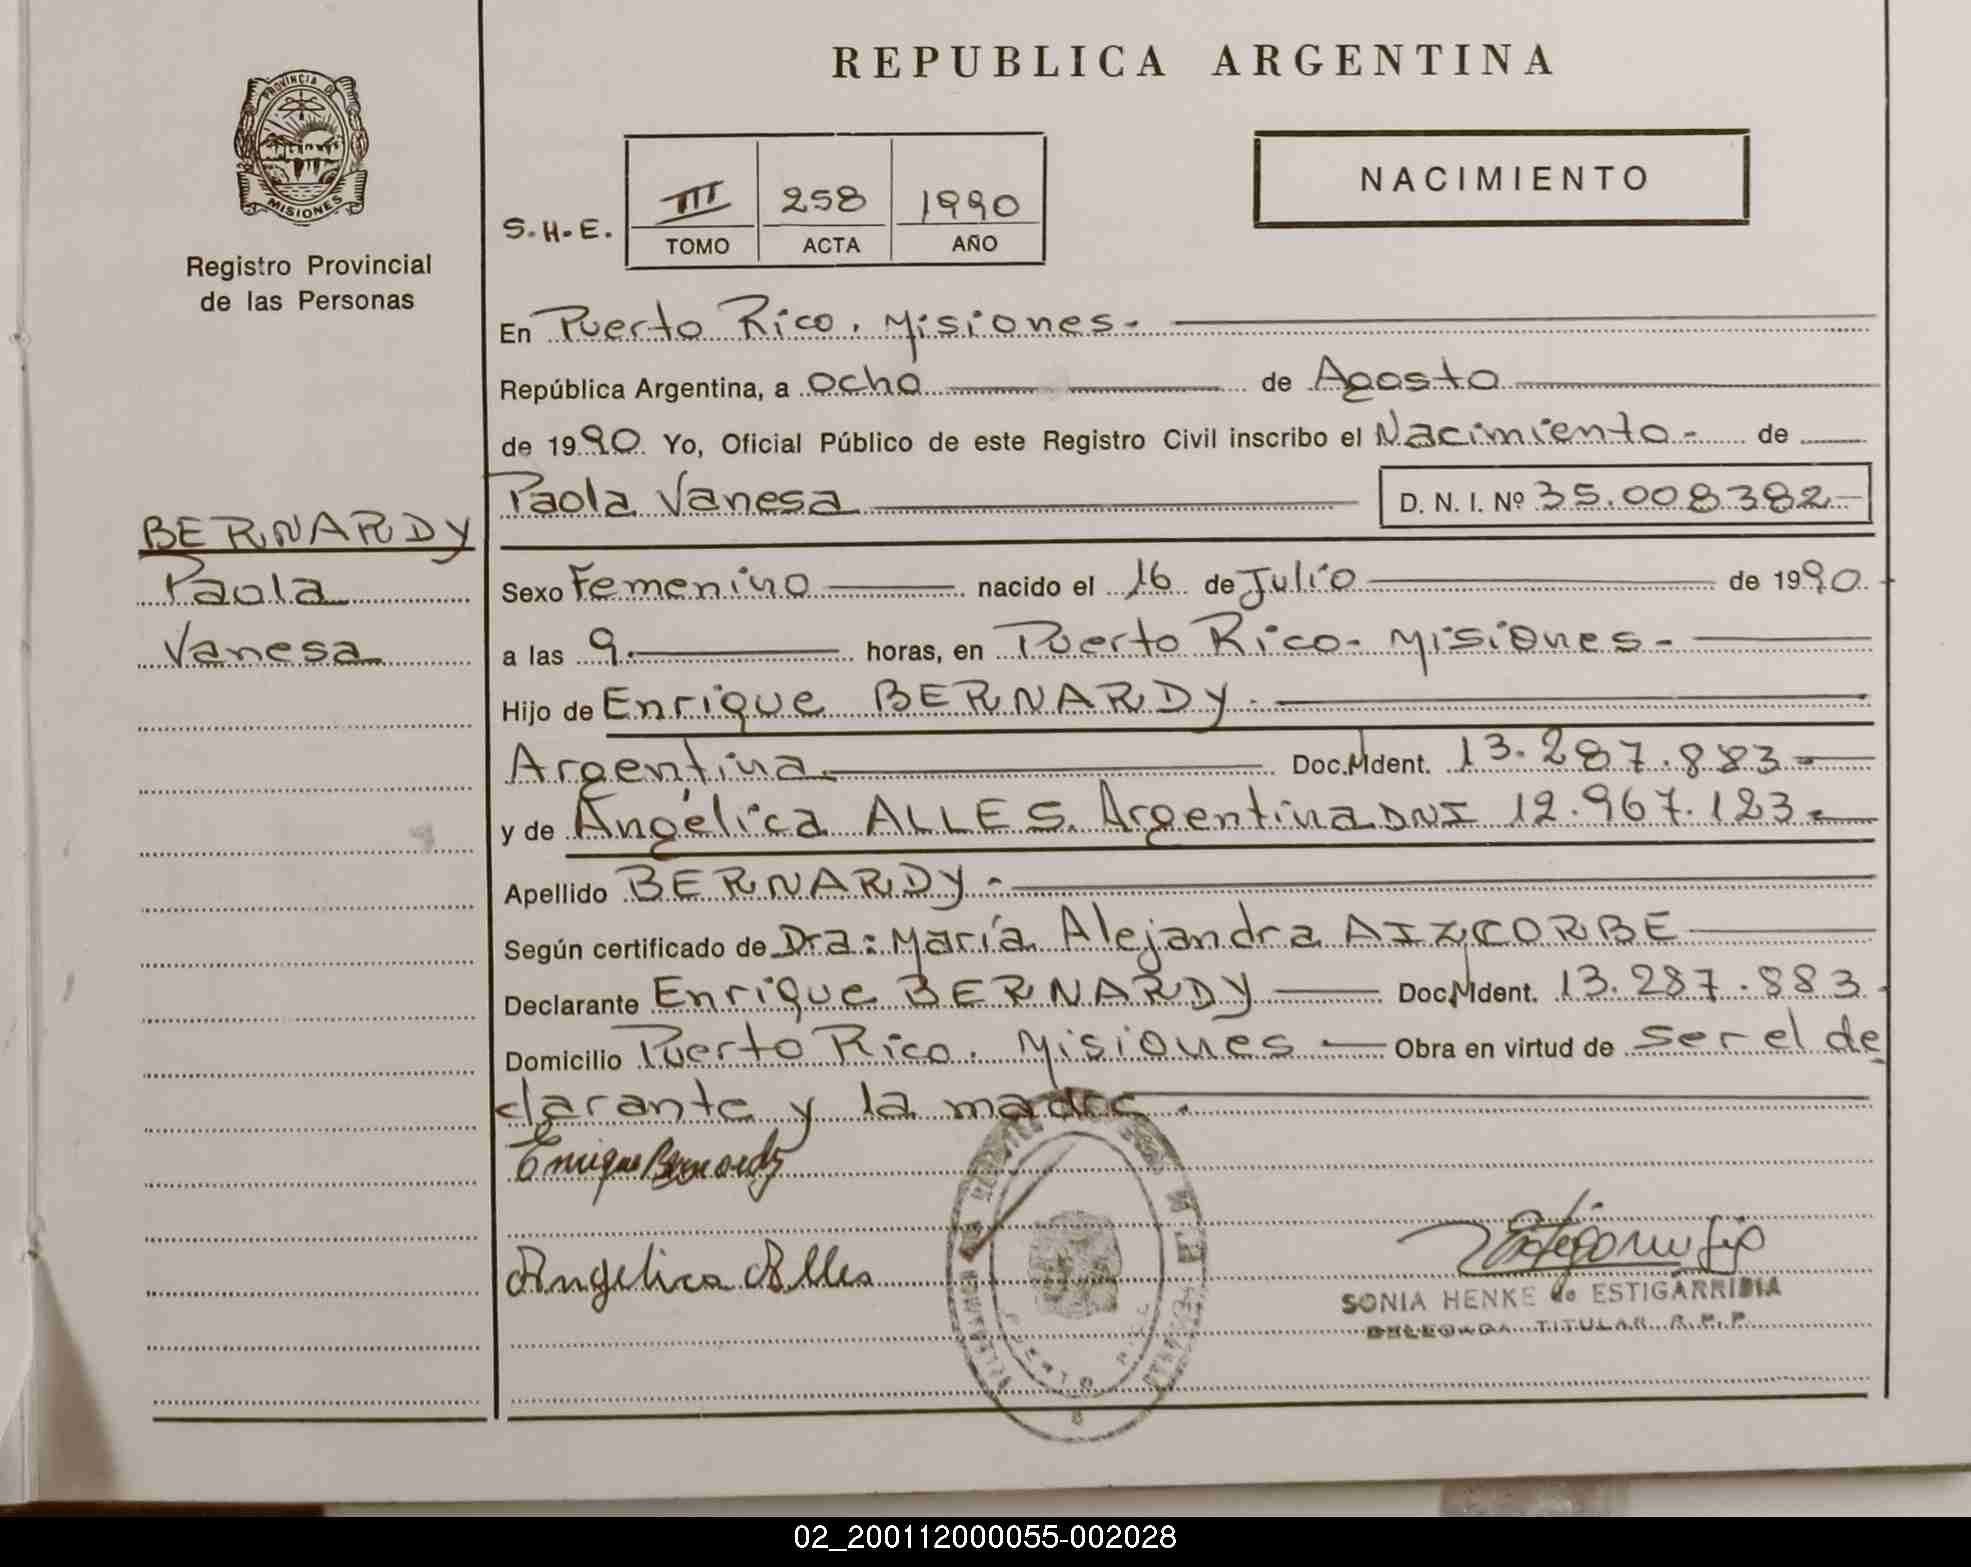 REPUBLICA ARGENTINA
PROVINCIA DE
MISIONES
Registro Provincial
de las Personas
NACIMIENTO
S.H.E.
III 258 1990
TOMO ACTA AÑO
En Puerto Rico. Misiones-
República Argentina, a ocho de Agosto
de 1990 Yo, Oficial Público de este Registro Civil inscribo el Nacimiento - de
Paola Vanesa D. N. I. Nº 35.008382-
BERNARDY
Paola
Vanesa
Sexo Femenino nacido el 16 de Julio de 1990
a las 9. horas, en Puerto Rico - Misiones -
Hijo de Enrique BERNARDY.
Argentina. Doc. Ident. 13.287.883-
y de Angélica ALLES. Argentina DNI 12.967.123-
Apellido BERNARDY-
Según certificado de Dra: María Alejandra AIZCORBE
Declarante Enrique BERNARDY Doc. Ident. 13.287.883
Domicilio Puerto Rico. Misiones Obra en virtud de ser el de
clarante y la madre.
Enrique Bernardy
Angelica Alles
SONIA HENKE de ESTIGARRIBIA
DELEGADA TITULAR R.P.P.
02_200112000055-002028